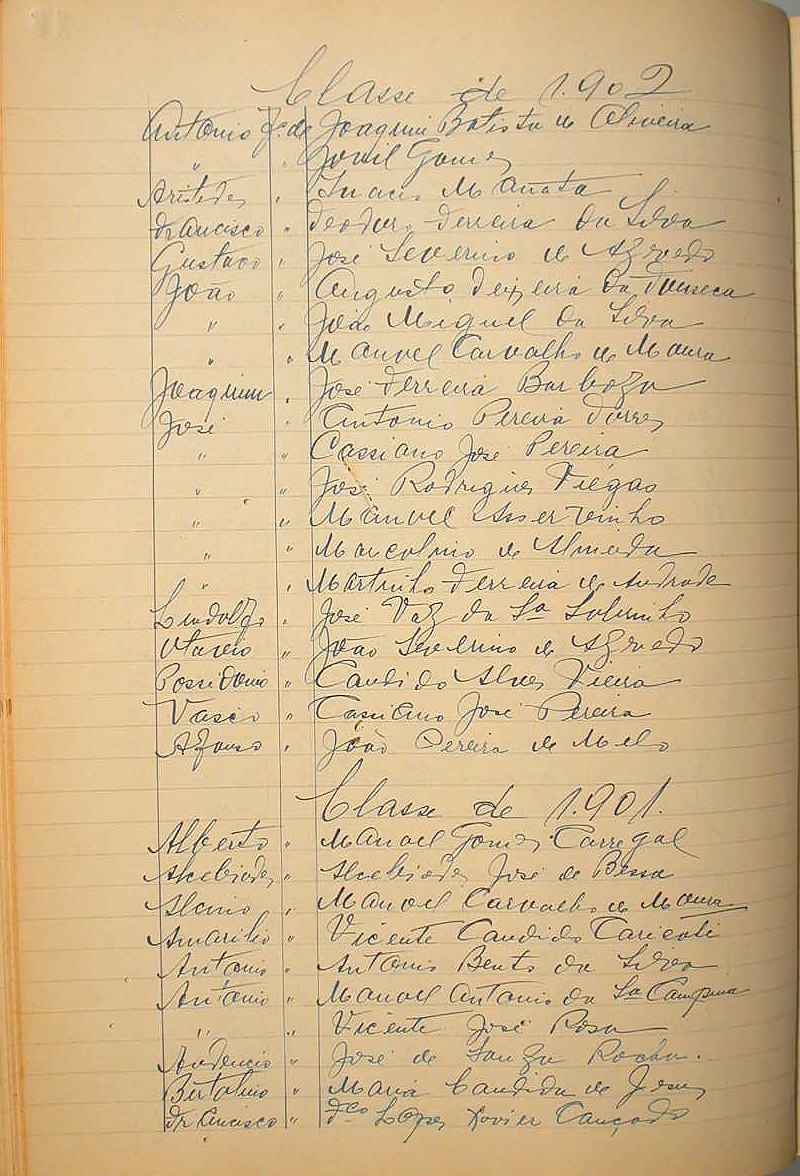 Classe de 1.902
Antonio Fo. de Joaquim Batista de Oliveira
" " Jovil Gomes
Aristides " Inacio Manata
Francisco " Teodoro Ferreira da Silva
Gustavo " José Severino de Azevedo
João " Augusto Teixeira da Fonseca
" " João Miguel da Silva
" " Manoel Carvalho de Moura
Joaquim " José Ferreira Barboza
José " Antonio Pereira Torres
" " Cassiano José Pereira
" " José Rodrigues Viégas
" " Manoel
" " Marcolino de Almeida
" " Martinho Ferreira de Andrade
Lindolfo " José Vaz da Sa Sobrinho
Otavio " João Severino de Azevedo
Possidonio " Candido Alves Vieira
Vasco " Cassiano José Pereira
Afonso " João Pereira de Melo
Classe de 1.901.
Alberto " Manoel Gomes Carregal
Alcebiades " Alcebiades José de Bessa
Alcino " Manoel Carvalho de Moura
Amarilio " Vicente Candido
Antonio " Antonio Bento da Silva
Antonio " Manoel Antonio da Sa Campina
" " Vicente José Rosa
Audencio " José de Souza Rocha.
Bertolino " Maria Candida de Jesus
Francisco " Fco Lopes Xavier Cançado